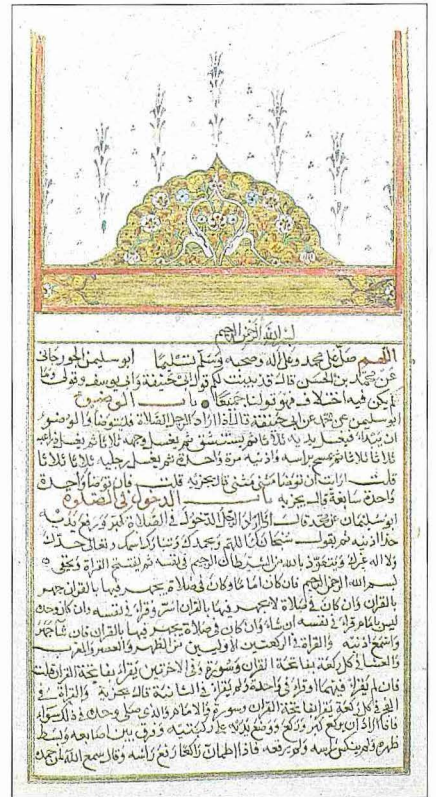 بسم الله الرحمن الرحيم
اللهم صل على محمد وعلى اله وصحبه وسلم تسليما ابو سليمن الجورجاني
عن محمد بن الحسن قال قد بينت لكم قول ابي حنيفة وابي يوسف وقولي وما
لم يكن فيه اختلاف فهو قولنا جميعا باب الوضوء
ابو سليمن عن محمد عن ابي حنيفة قال اذا اراد الرجل الصلاة فليتوضأ والوضوء
ان يبدأ فيغسل يديه ثلاثا ثم يستنشق ثم يغسل وجهه ثلاثا ثم يغسل ذراعيه
ثلاثا ثلاثا ثم يمسح براسه واذنيه مرة واحدة ثم يغسل رجليه ثلاثا ثلاثا
قلت ارايت ان توضا مثنى مثنى قال يجزيه قلت فان توضا واحدة
واحدة سابغة قال يجزيه باب الدخول في الصلوة
ابو سليمان عن محمد قال اذا اراد الرجل الدخول في الصلاة كبر ورفع يديه
حذا اذنيه ثم يقول سبحانك اللهم وبحمدك وتبارك اسمك وتعالى جدك
ولا اله غيرك ويتعوذ بالله من الشيطان الرجيم في نفسه ثم يفتتح القراة ويخفي
بسم الله الرحمن الرحيم فان كان اماما وكان في صلاة يجهر فيها بالقران جهر
بالقران وان كان في صلاة لا يجهر فيها بالقران اسر وقرا في نفسه وان كان وحده
ليس بامام قرا في نفسه ان شا وان كان في صلاة يجهر فيها بالقران فان شا جهر
واسمع اذنيه والقراة في الركعتين الاوليين من الظهر والعصر والمغرب
والعشا في كل ركعة بفاتحة القران وسورة وفي الاخرتين يقرا بفاتحة القران قلت
فان لم يقرا فيهما او قرا في واحدة ولم يقرا في الثانية قال يجزيه والقراة في
الفجر في كل ركعة يقرا بفاتحة القران وسورة والامام والذي صلى وحده في ذلك سواء
فاذا اراد ان يركع كبر وركع ووضع يديه على ركبتيه وفرق بين اصابعه وبسط
ظهره ولم ينكس راسه ولم يرفعه فاذا اطمان راكعا رفع راسه وقال سمع الله لمن حمده